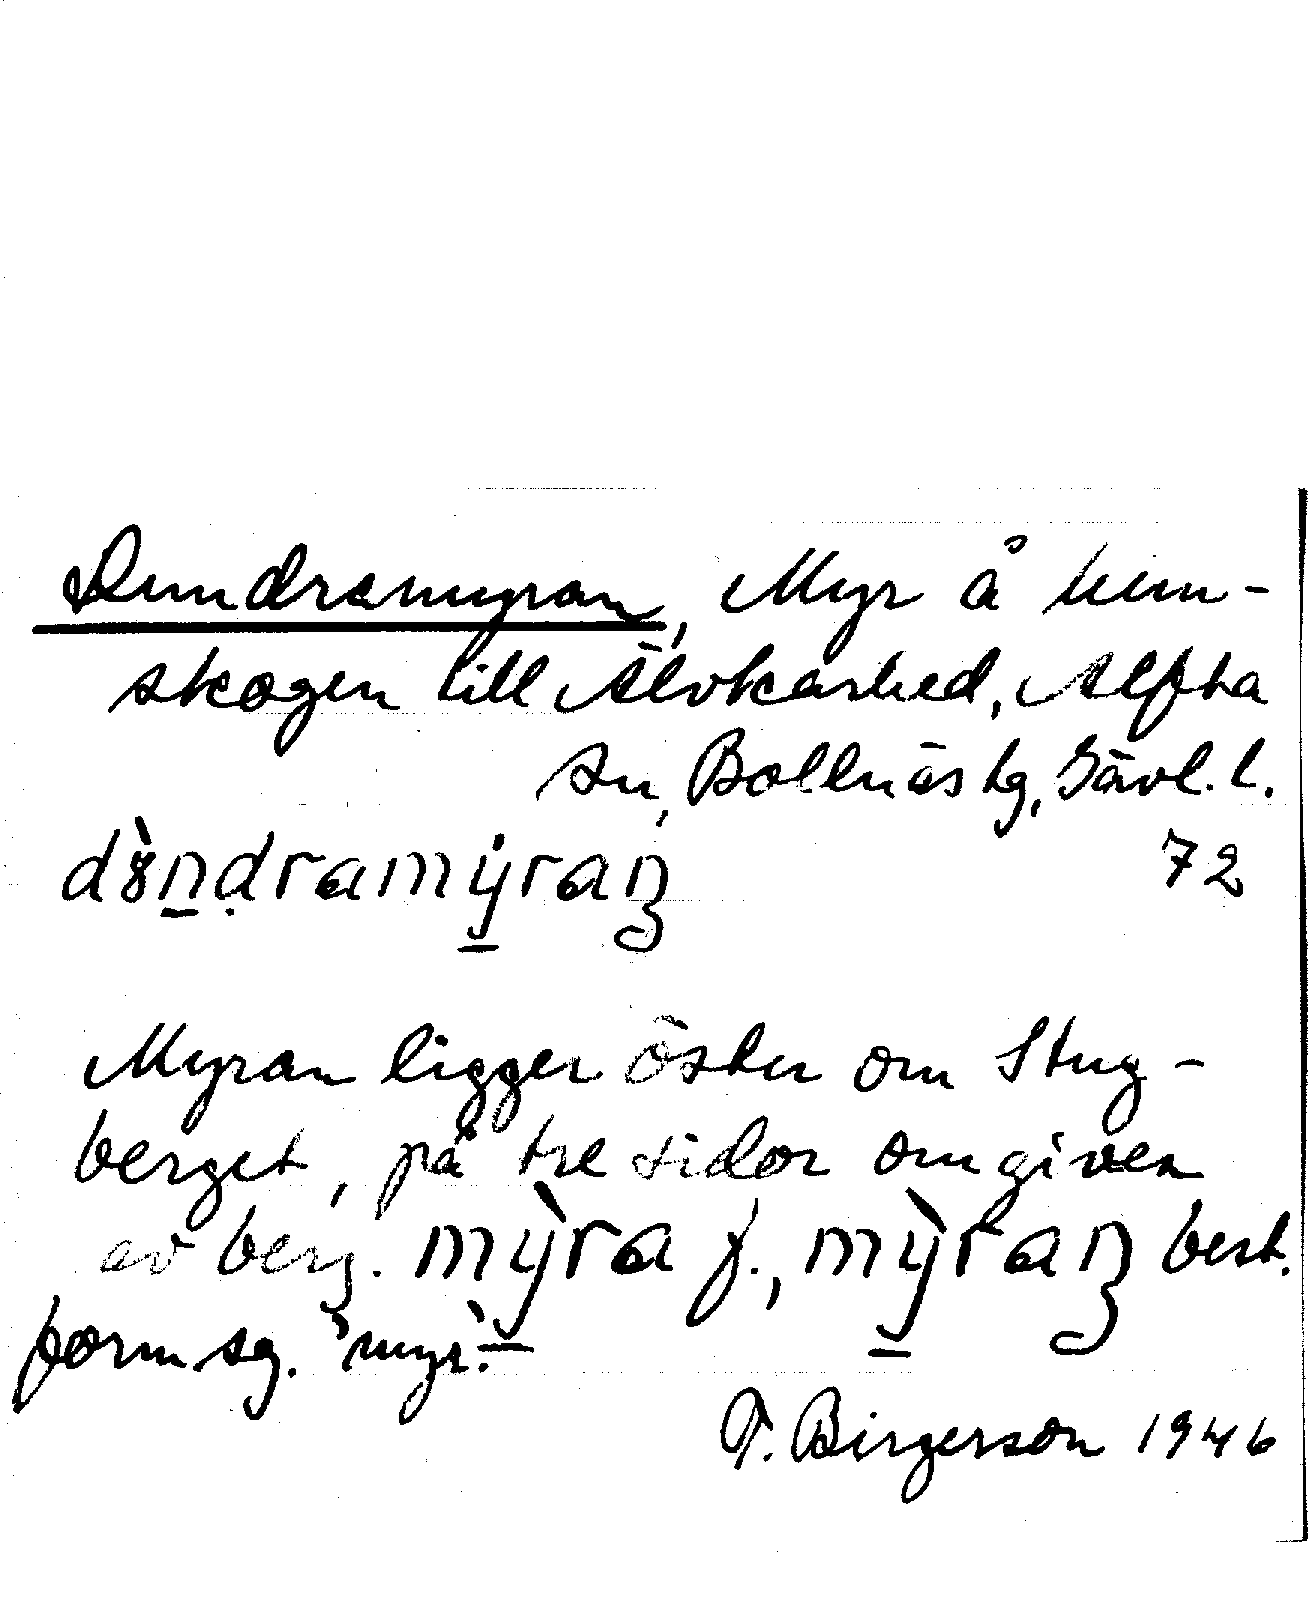 Dundramyran, Myr å hem-
skogen till Älvkarhed, Alfta
sn, Bollnäs tg, Gävl. l.
dȣ̀n̠ḍramy̠ran 72
Myran ligger öster om Stug-
berget, på tre sidor omgiven
av berg. mỳ̠ra f., mỳ̠ran best.
form sg. 'myr'.
T. Birgerson 1946